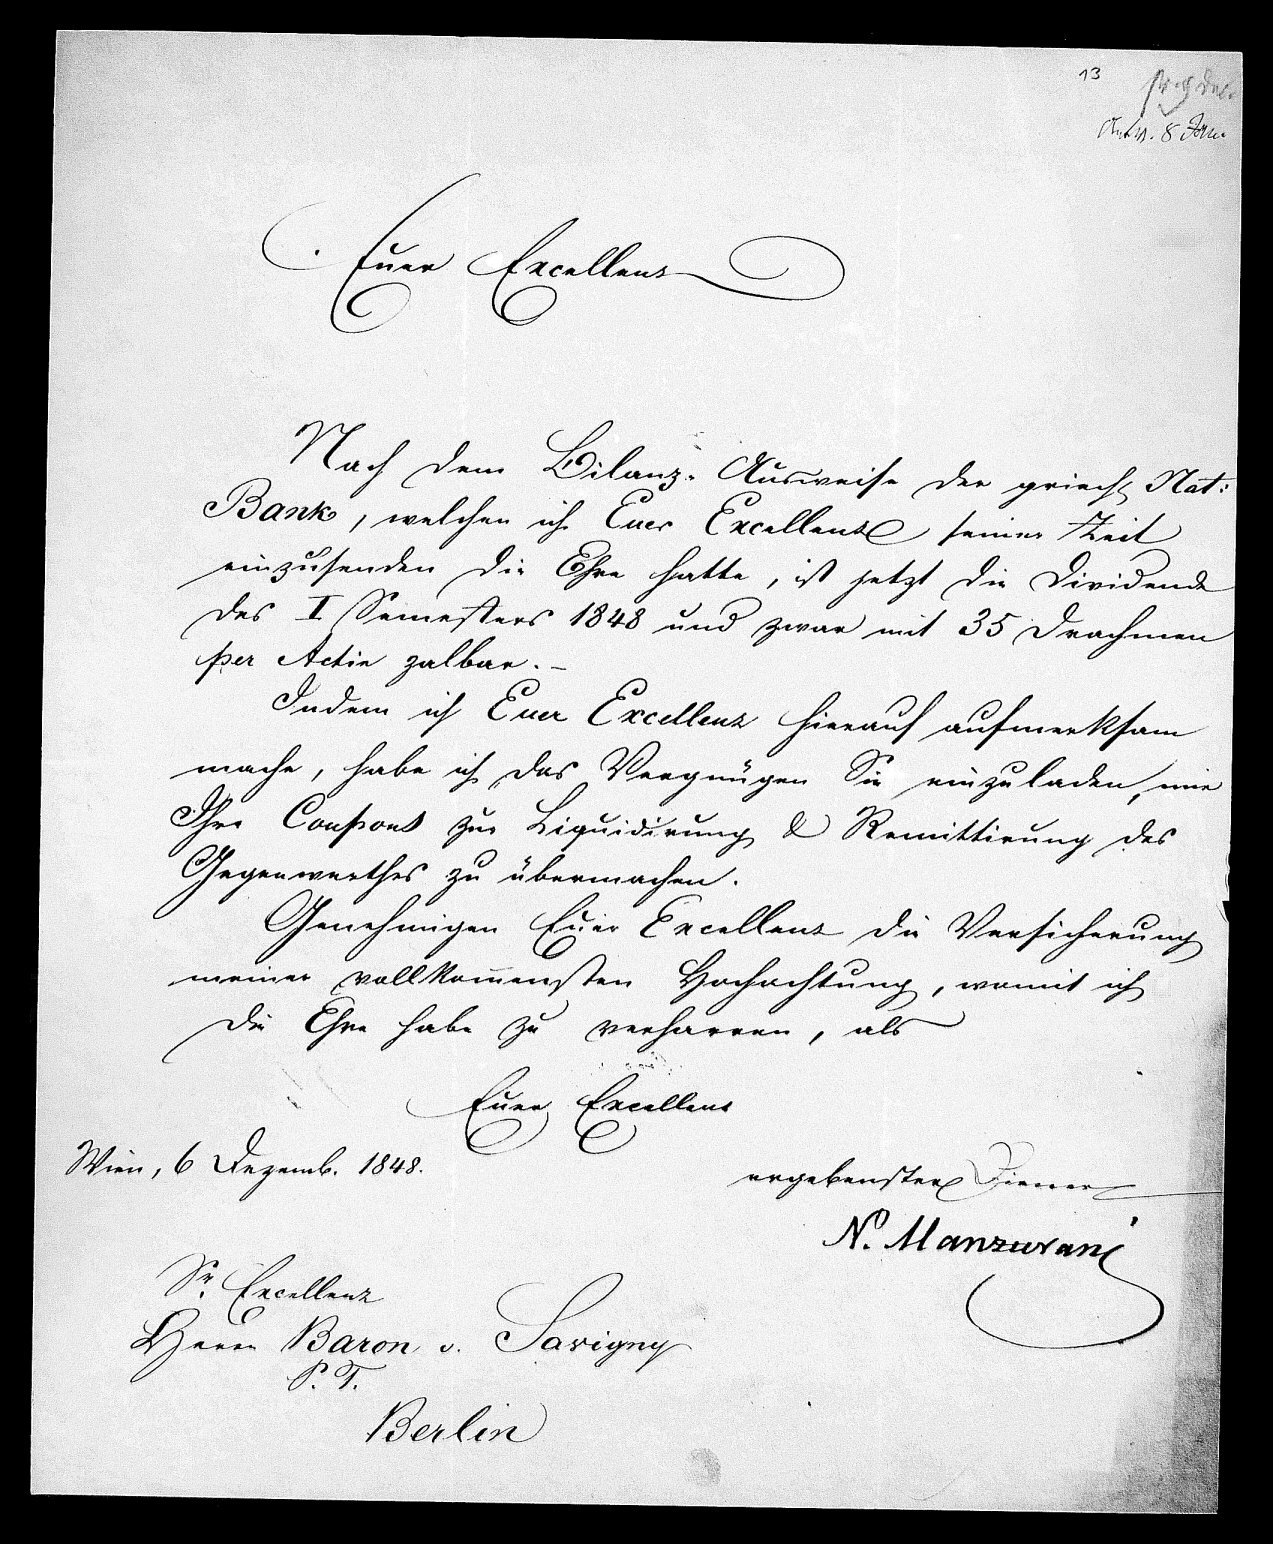 13
8 Jan
Euer Excellenz
Nach dem Bilanz-Ausweise der griech Nat:
Bank, welchen ich Euer Excellenz seiner Zeit
einzusenden die Ehre hatte, ist jetzt die Dividende
des I Semesters 1848 und zwar mit 35 Drachmen
per Actie zalbar. –
Indem ich Euer Excellenz hierauf aufmerksam
mache, habe ich das Vergnügen Sie einzuladen, mir
Ihre Coupons zur Liquidirung & Remittirung des
Gegenwerthes zu übermachen.
Genehmigen Euer Excellenz die Versicherung
meiner vollkom̄ensten Hochachtung, womit ich
die Ehre habe zu verharren, als
Euer Excellenz
Wien, 6 Dezemb. 1848.
ergebenster Diener
N. Manzurani
Sr. Excellenz
Herrn Baron v. Savigny
P. T.
Berlin